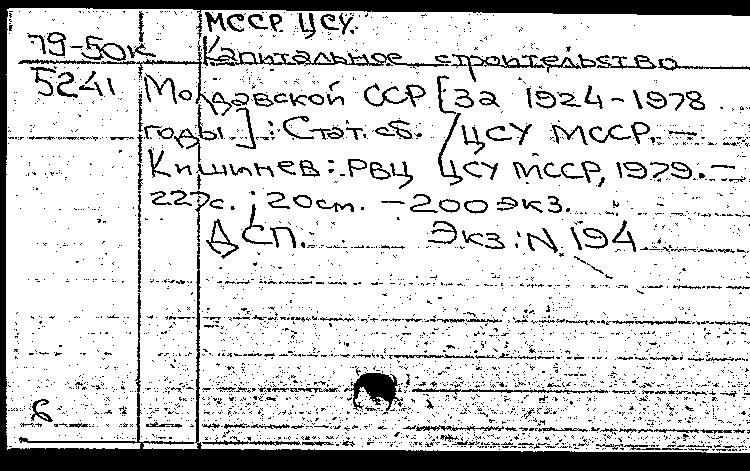 МССР. ЦСУ.
79-50к Капитальное строительство
5241 Молдавской ССР [за 1924-1978
годы] : Стат. сб. / ЦСУ МССР. —
Кишинев : РВЦ ЦСУ МССР, 1979. —
227с. ; 20см. — 200 экз.
ДСП. Экз. N 194
б